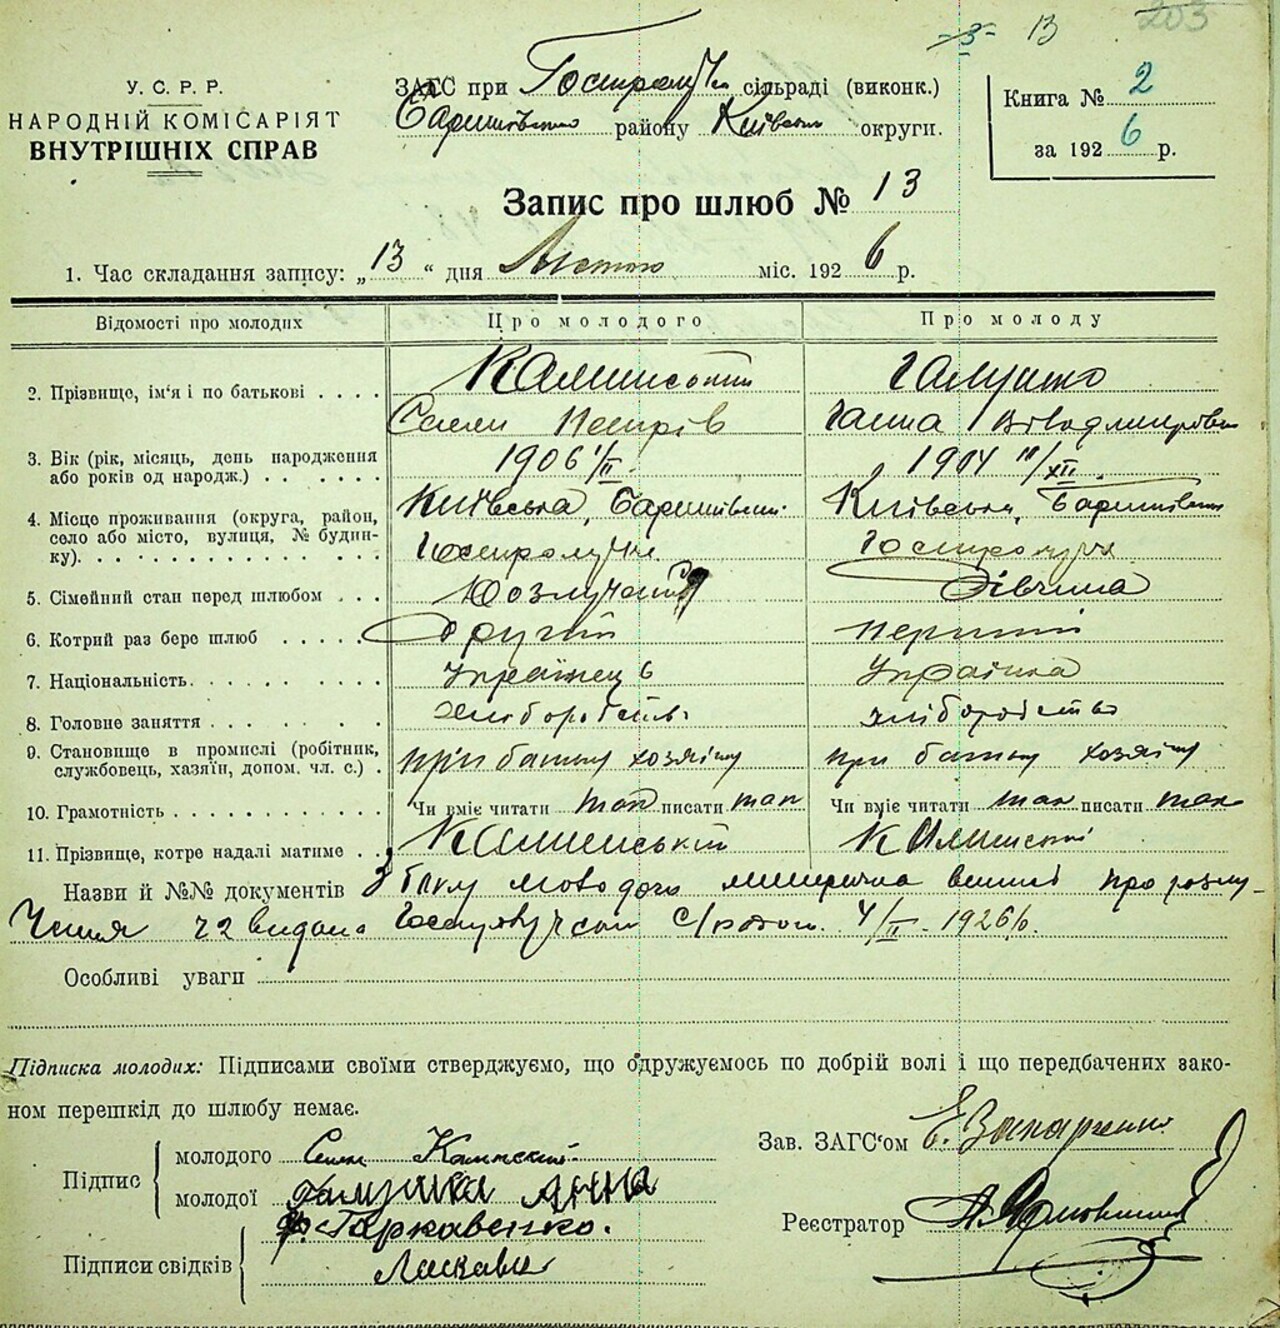 203
-3- 13
У. С. Р. Р.
НАРОДНІЙ КОМІСАРІЯТ
ВНУТРІШНІХ СПРАВ
ЗАГС при сільраді (виконк.)
району Київськ округи.
Книга № 2
за 1926 р.
Запис про шлюб № 13
1. Час складання запису: „13“ дня Лютого міс. 1926 р.
Відомості про молодих
Про молодого
Про молоду
2. Прізвище, ім'я і по батькові . . . .
Калинський
Галушко
Семен Петрів
Ганна Володимирівн
3. Вік (рік, місяць, день народження
або років од народж.) . . . . . .
1906 1/II.
1904 10/XII.
4. Місце проживання (округа, район,
село або місто, вулиця, № будин-
ку). . . . . . . . . . . . . .
Київська, Баришівськ.
Київська, Баришівськ
5. Сімейний стан перед шлюбом . . .
Дівчина
6. Котрий раз бере шлюб . . . . .
другий
перший
7. Національність. . . . . . . . . .
Українец
Українка
8. Головне заняття . . . . . . . .
хліборобств.
хліборобство
9. Становище в промислі (робітник,
службовець, хазяїн, допом. чл. с.) .
при батьку хозяїну
при батьку хозяїну
10. Грамотність . . . . . . . . . . .
Чи вміє читати так писати так
Чи вміє читати так писати так
11. Прізвище, котре надалі матиме . .
Калинський
Калинські
Назви й №№ документів З боку молодого метрична про розлу-
чення 72 видана с/радою. 4/II. 1926 р.
Особливі уваги
Підписка молодих: Підписами своїми стверджуємо, що одружуємось по добрій волі і що передбачених зако-
ном перешкід до шлюбу немає.
Підпис
молодого Семен Калинский
молодої Галушка Анна
Підписи свідків
Гаркавенко.
Зав. ЗАГС'ом
Реєстратор